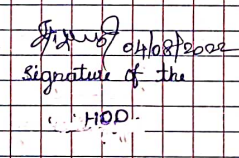 04/08/2022
Signature of the
HOD.